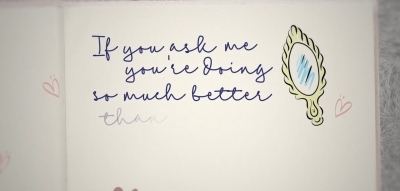 If you ask me
you're doing
so much better
than